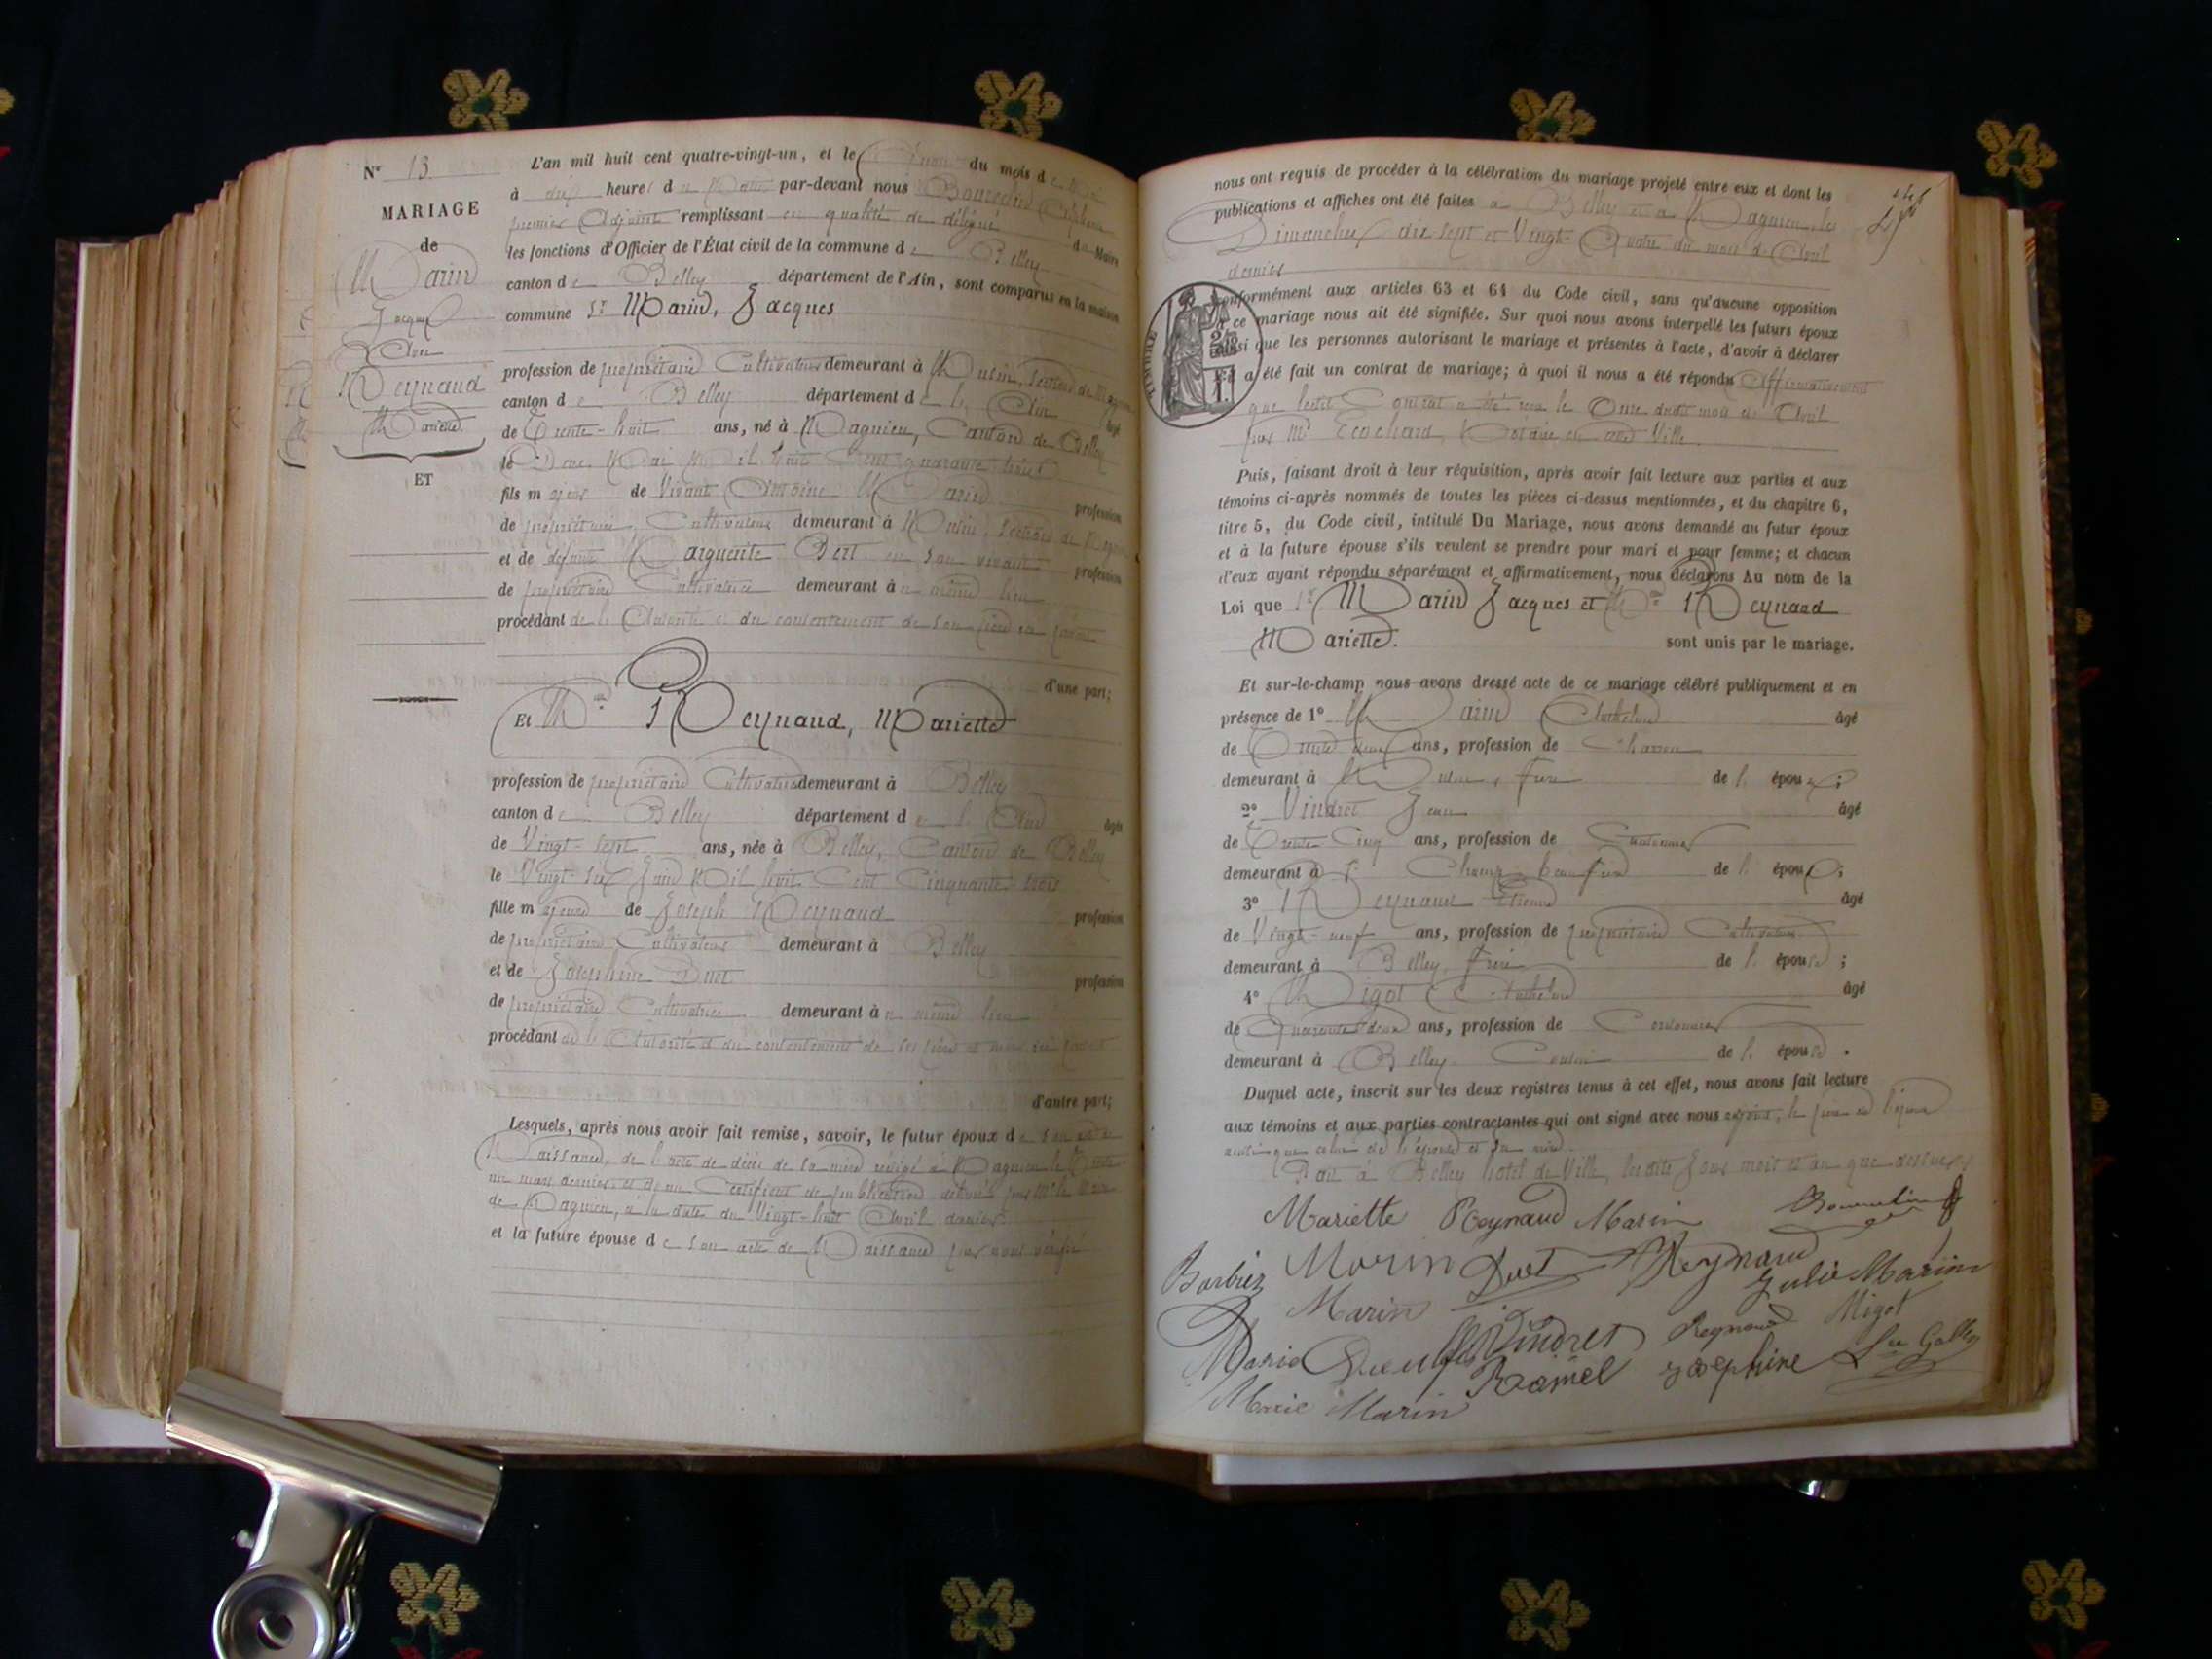 N° 13
MARIAGE
de
Marin
Jacques
Avec
Reynaud
Mariette
ET
L'an mil huit cent quatre-vingt-un, et le du mois de
à dix heures du Matin par-devant nous
premier Adjoint remplissant en qualité de délégué du Maire
les fonctions d'Officier de l'État civil de la commune de Belley
canton de Belley département de l'Ain, sont comparus en la maison
commune Sr Marin, Jacques
profession de propriétaire Cultivateur demeurant à Musin, Section de
canton de Belley département de l'Ain âgé
de Trente-huit ans, né à Magnieu, Canton de Belley
le Mai Mil huit Cent quarante trois
fils majeur de Vivant Antoine Marin profession
de propriétaire, Cultivateur demeurant à Musin, Section de
et de défunte Marguerite Bert en son vivant profession
de propriétaire Cultivatrice demeurant au même lieu
procédant de l'Autorité et du consentement de son père ici présent
d'une part;
Et Melle Reynaud, Mariette
profession de propriétaire Cultivatrice demeurant à Belley
canton de Belley département de l'Ain âgée
de Vingt-sept ans, née à Belley, Canton de Belley
le Vingt-six Juin Mil huit Cent Cinquante trois
fille majeure de Joseph Reynaud profession
de propriétaire Cultivateur demeurant à Belley
et de Joséphine Duet profession
de propriétaire Cultivatrice demeurant au même lieu
procédant de l'Autorité et du consentement de ses père et mère ici présents
d'autre part;
Lesquels, après nous avoir fait remise, savoir, le futur époux de son acte de
Naissance, de l'acte de décès de sa mère rédigé à Magnieu le
mars dernier, et d'un Certificat de publication délivré par Mr le Maire
de Magnieu, à la date du Vingt-huit Avril dernier
et la future épouse de son acte de Naissance par nous vérifié
nous ont requis de procéder à la célébration du mariage projeté entre eux et dont les
publications et affiches ont été faites à Belley et à Magnieu, les
Dimanches dix sept et Vingt-Quatre du mois d'Avril
dernier
conformément aux articles 63 et 64 du Code civil, sans qu'aucune opposition
à ce mariage nous ait été signifiée. Sur quoi nous avons interpellé les futurs époux
ainsi que les personnes autorisant le mariage et présentes à l'acte, d'avoir à déclarer
s'il a été fait un contrat de mariage; à quoi il nous a été répondu Affirmativement
que ledit Contrat a été reçu le Onze dudit mois d'Avril
par Me Ecochard, Notaire en cette Ville
TIMBRE
Puis, faisant droit à leur réquisition, après avoir fait lecture aux parties et aux
témoins ci-après nommés de toutes les pièces ci-dessus mentionnées, et du chapitre 6,
titre 5, du Code civil, intitulé Du Mariage, nous avons demandé au futur époux
et à la future épouse s'ils veulent se prendre pour mari et pour femme; et chacun
d'eux ayant répondu séparément et affirmativement, nous déclarons Au nom de la
Loi que Sr Marin Jacques et Melle Reynaud
Mariette. sont unis par le mariage.
Et sur-le-champ nous avons dressé acte de ce mariage célébré publiquement et en
présence de 1° Marin Anthelme âgé
de Trente deux ans, profession de Charron
demeurant à Musin, frère de l'époux;
2° Vindret Jean âgé
de Trente Cinq ans, profession de
demeurant à St Champ, beau frère de l'époux;
3° Reynaud Etienne âgé
de Vingt-neuf ans, profession de propriétaire Cultivateur
demeurant à Belley, frère de l'épouse;
4° Migot Anthelme âgé
de Quarante deux ans, profession de Cordonnier
demeurant à Belley, Cousin de l'épouse.
Duquel acte, inscrit sur les deux registres tenus à cet effet, nous avons fait lecture
aux témoins et aux parties contractantes qui ont signé avec nous adjoint, le père de l'époux
ainsi que celui de l'épouse et sa mère.
Fait à Belley hotel de Ville, les dits Jour mois et an que dessus
Mariette Reynaud Marin
Barbier Morin Duet Reynaud Julie Marin
Marin Vindret Reynaud Migot
Marie Ramel Joséphine
Marie Marin